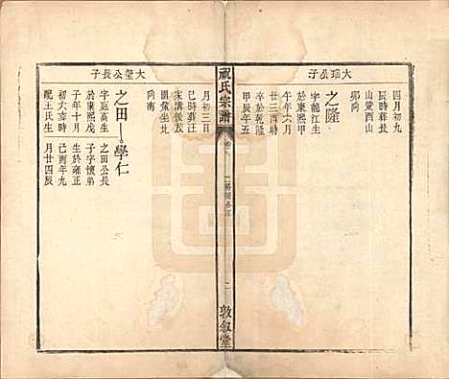 大瑶公子
四月初九
辰時葬長
山黃西山
邓向
之隆
字龍江生
於康熙甲
午年六月
廿三酉時
卒於乾隆
甲辰年五
祝氏宗譜
敦叙堂
月初三日
巳時葬汪
家溝後左
向南
大瑩公長子
之田—學仁
字廷高生
於康熙戊
子年十月
初六寅時
配王氏生
之田公長
子字懷弟
生於雍正
己酉年九
月廿四辰